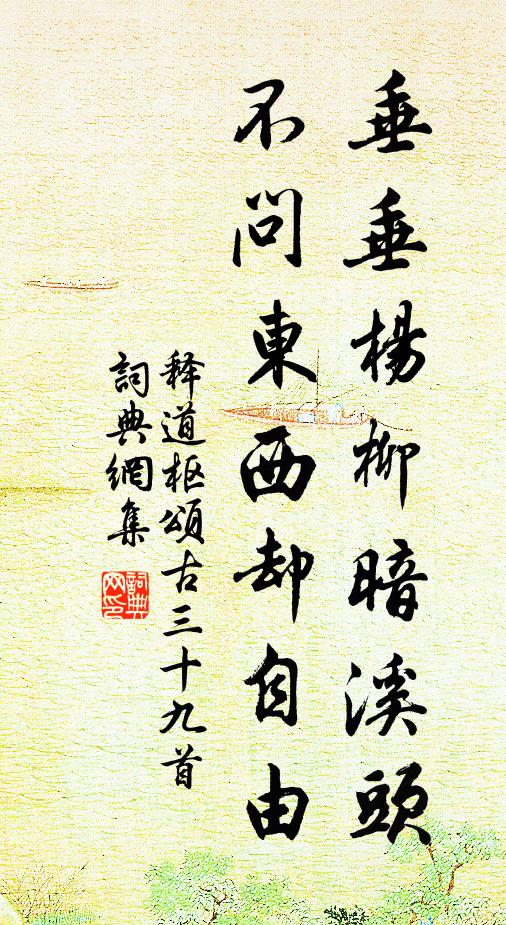 垂垂楊柳暗溪頭
不問東西却自由
释道枢頌古三十九首
詞典網集
詞典网印